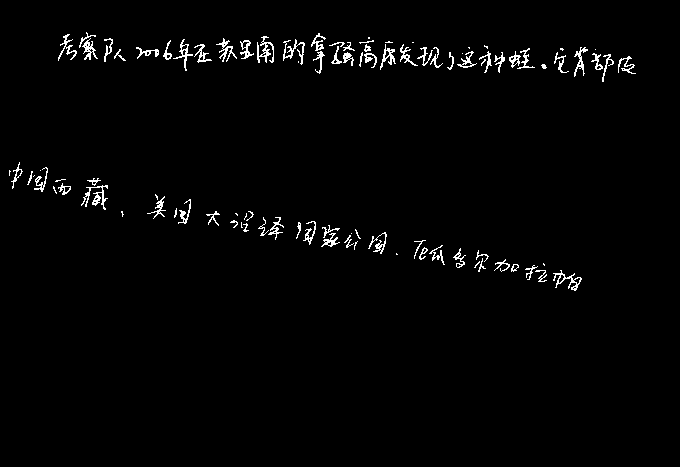 考察队2006年在苏里南的拿骚高原发现了这种蛙。它背部皮
中国西藏、美国大沼泽国家公园、厄瓜多尔加拉帕